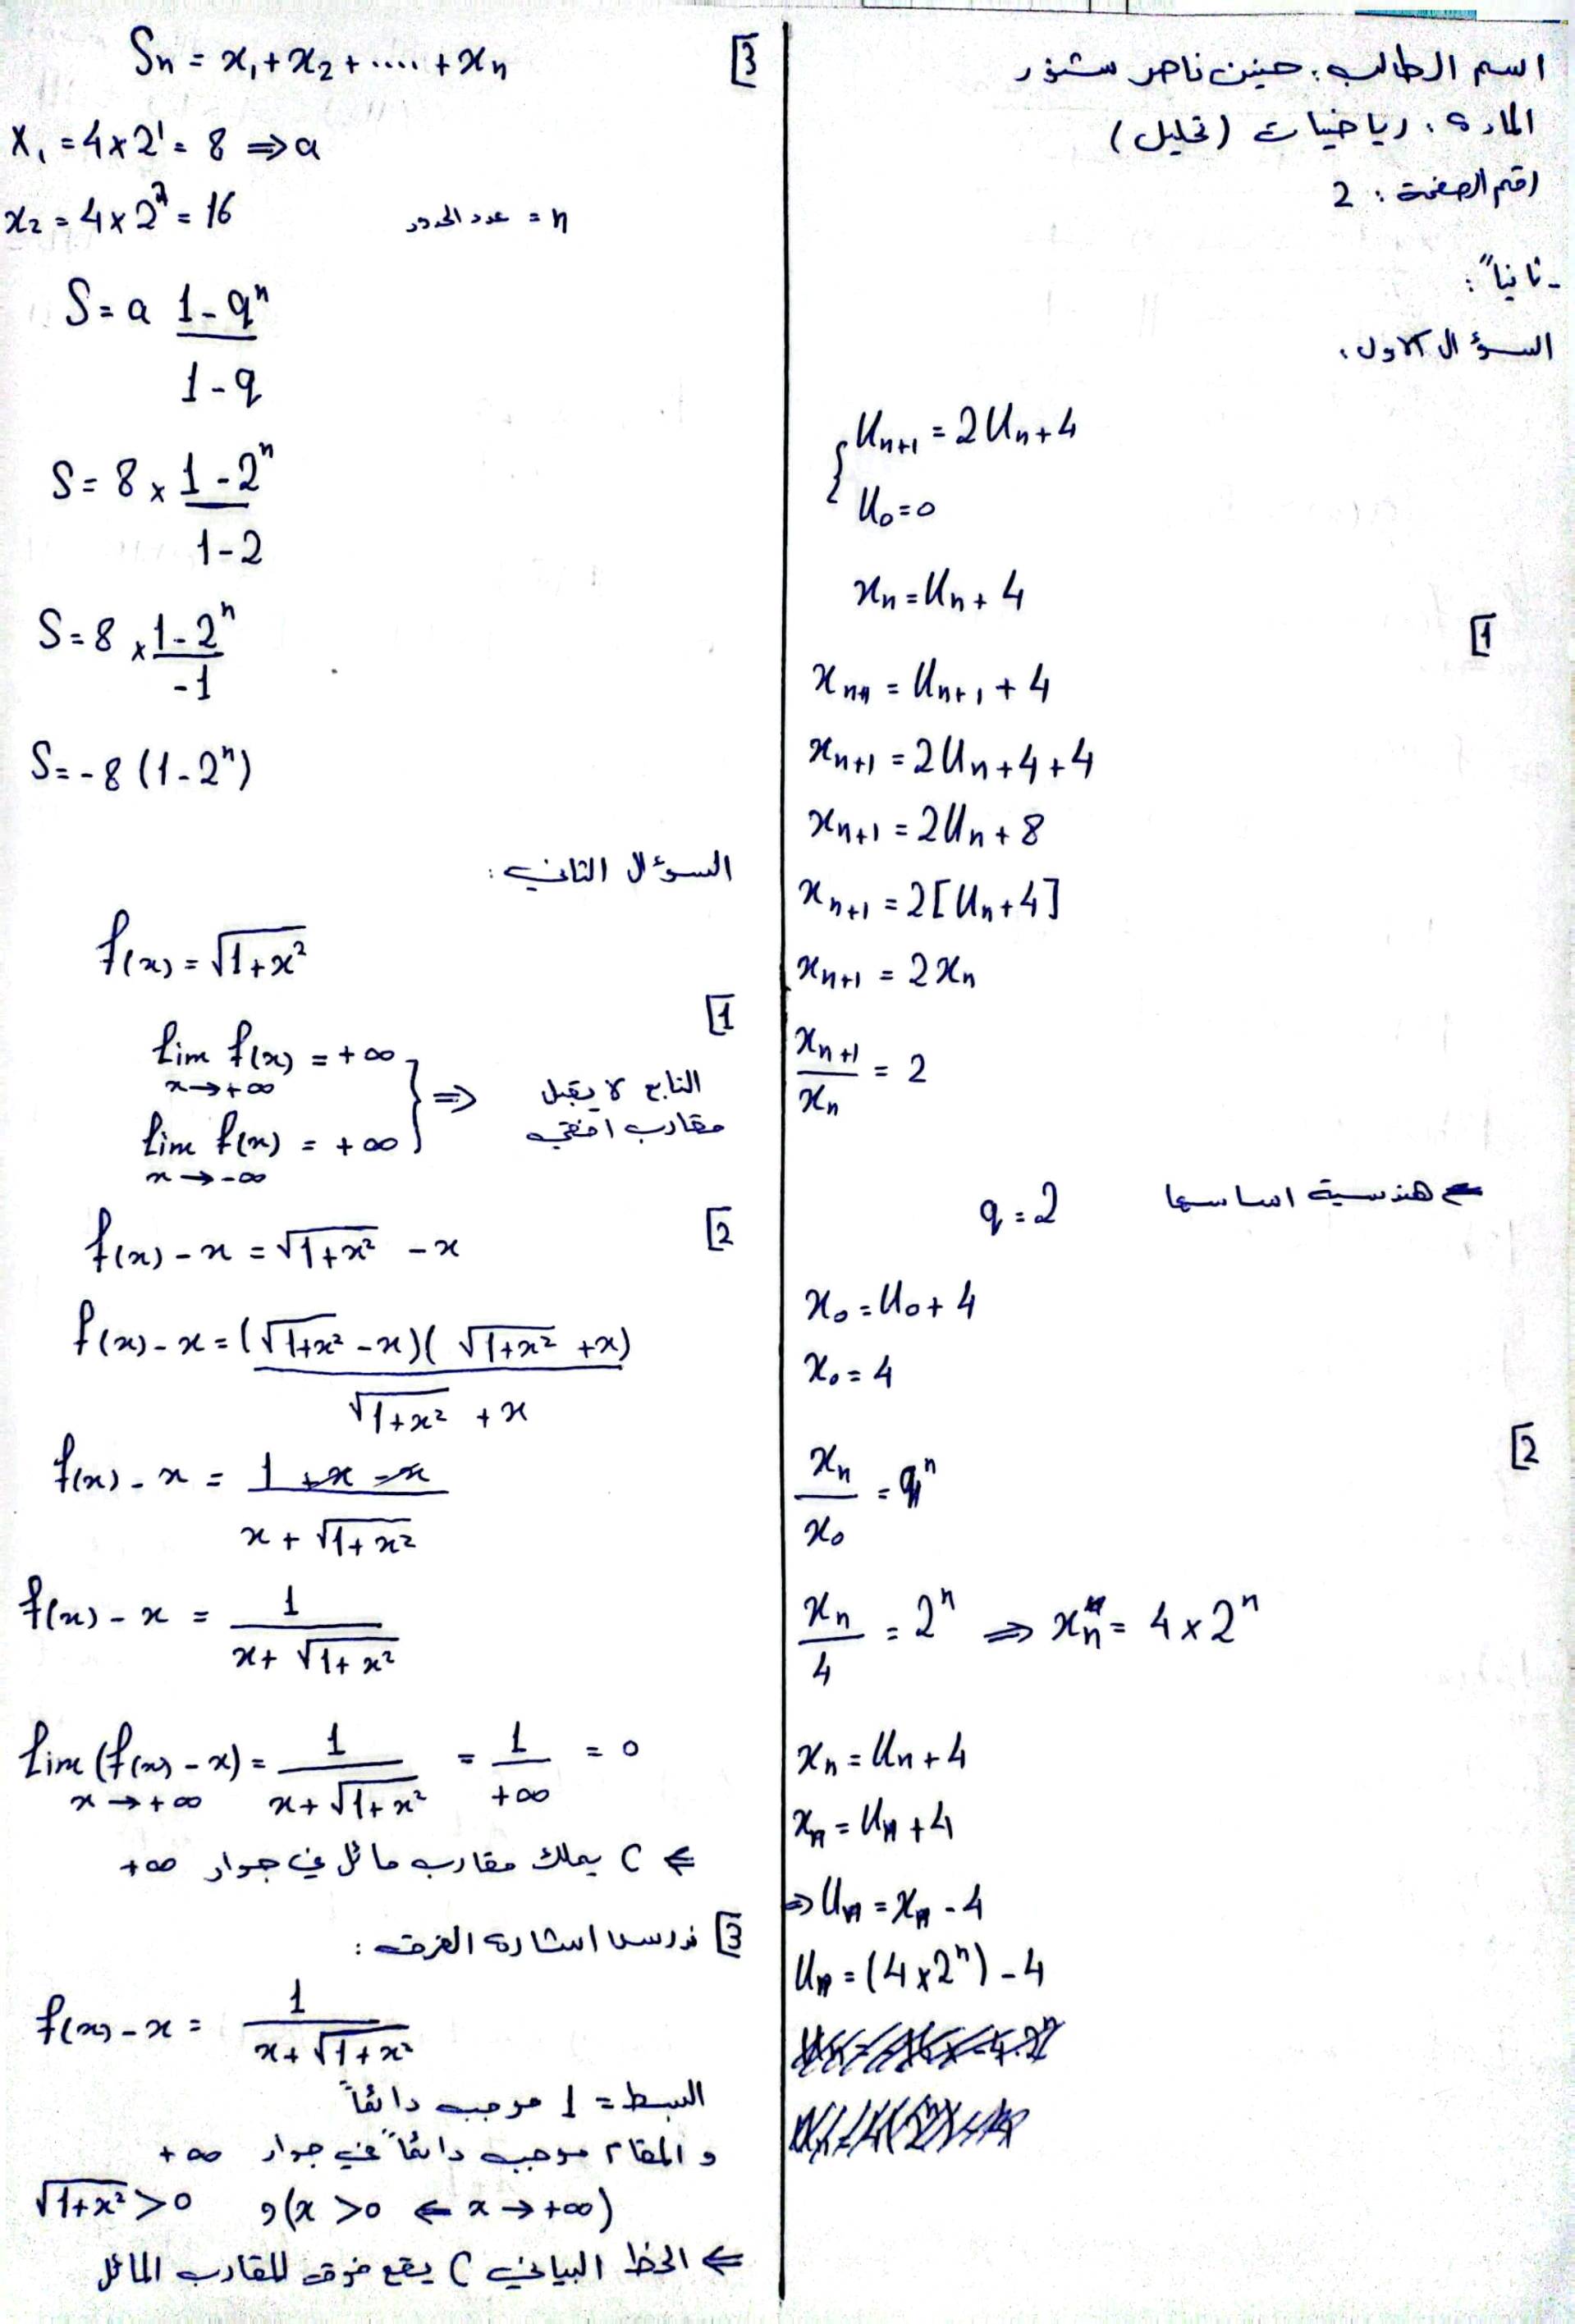 اسم الطالب: حنين ناصر
المادة: رياضيات (تحليل)
رقم الصفحة: 2
- ثانياً:
السؤال الاول:
{ Un+1 = 2Un + 4
U0 = 0
xn = Un + 4
1]
xn+1 = Un+1 + 4
xn+1 = 2Un + 4 + 4
xn+1 = 2Un + 8
xn+1 = 2[Un + 4]
xn+1 = 2xn
xn+1 / xn = 2
⇐ هندسية اساسها q = 2
x0 = U0 + 4
x0 = 4
2]
xn / x0 = qⁿ
xn / 4 = 2ⁿ ⇒ xn = 4 × 2ⁿ
xn = Un + 4
xn = Un + 4
⇒ Un = xn - 4
Un = (4 × 2ⁿ) - 4
3] Sn = x1 + x2 + .... + xn
x1 = 4 × 2¹ = 8 ⇒ a
x2 = 4 × 2² = 16
n = عدد الحدود
S = a (1 - qⁿ) / (1 - q)
S = 8 × (1 - 2ⁿ) / (1 - 2)
S = 8 × (1 - 2ⁿ) / -1
S = -8 (1 - 2ⁿ)
السؤال الثاني:
f(x) = √(1 + x²)
1]
lim f(x) = +∞
x → +∞
lim f(x) = +∞
x → -∞
} ⇒ التابع لا يقبل
مقارب افقي
2] f(x) - x = √(1 + x²) - x
f(x) - x = (√(1 + x²) - x)(√(1 + x²) + x) / (√(1 + x²) + x)
f(x) - x = 1 + x - x / (x + √(1 + x²))
f(x) - x = 1 / (x + √(1 + x²))
lim (f(x) - x) = 1 / (x + √(1 + x²)) = 1 / +∞ = 0
x → +∞
⇐ C يملك مقارب مائل في جوار +∞
3] ندرس اشارة الفرق:
f(x) - x = 1 / (x + √(1 + x²))
البسط = 1 موجب دائماً
و المقام موجب دائماً في جوار +∞
(x → +∞ ⇐ x > 0) و √(1 + x²) > 0
⇐ الخط البياني C يقع فوق المقارب المائل